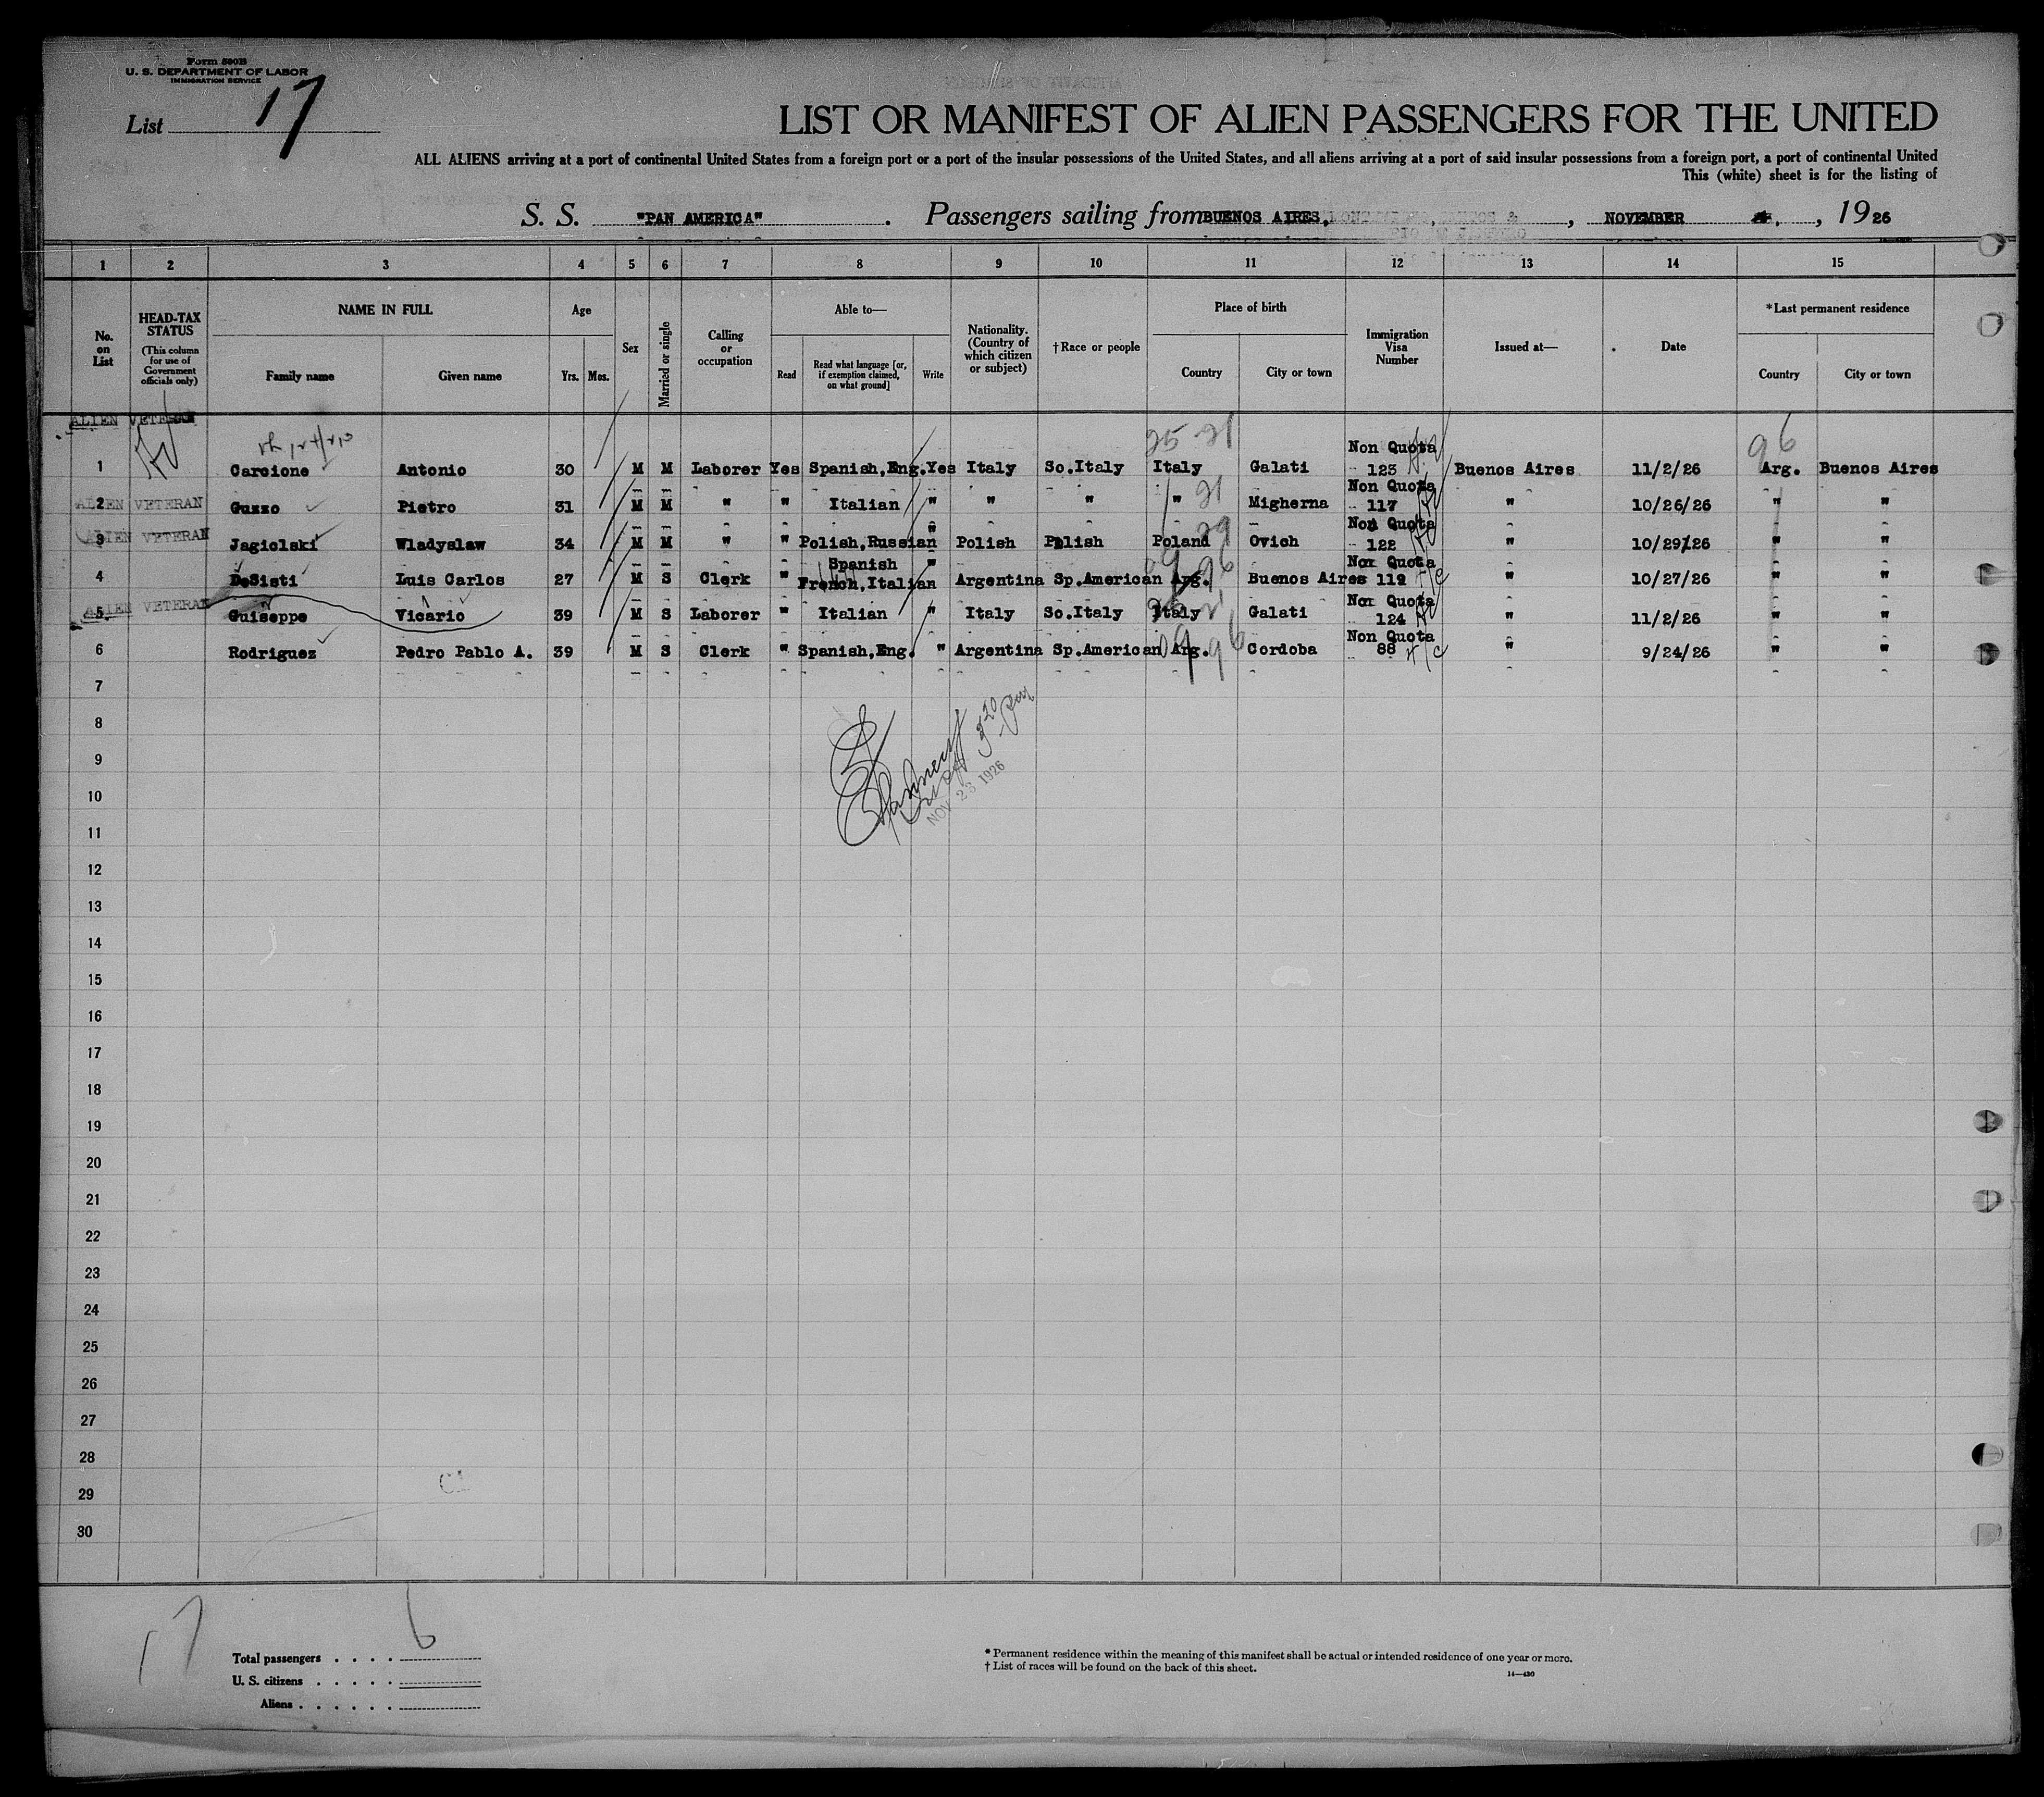 Form 500B
U. S. DEPARTMENT OF LABOR
IMMIGRATION SERVICE
List 17
LIST OR MANIFEST OF ALIEN PASSENGERS FOR THE UNITED
ALL ALIENS arriving at a port of continental United States from a foreign port or a port of the insular possessions of the United States, and all aliens arriving at a port of said insular possessions from a foreign port, a port of continental United
This (white) sheet is for the listing of
S. S. "PAN AMERICA". Passengers sailing from BUENOS AIRES, , NOVEMBER , 1926
1 2 3 4 5 6 7 8 9 10 11 12 13 14 15
No. on List
HEAD-TAX STATUS (This column for use of Government officials only)
NAME IN FULL Family name Given name
Age Yrs. Mos.
Sex
Married or single
Calling or occupation
Able to— Read Read what language [or, if exemption claimed, on what ground] Write
Nationality. (Country of which citizen or subject)
†Race or people
Place of birth Country City or town
Immigration Visa Number
Issued at—
Date
*Last permanent residence Country City or town
ALIEN VETERAN
25 21 96
1 Carcione Antonio 30 M M Laborer Yes Spanish,Eng. Yes Italy So.Italy Italy Galati Non Quota 123 Buenos Aires 11/2/26 Arg. Buenos Aires
ALIEN VETERAN
2 Guzzo Pietro 31 M M " " Italian " " " " Migherna Non Quota 117 " 10/26/26 " "
ALIEN VETERAN
3 Jagiolski Wladyslaw 34 M M " " Polish,Russian " Polish Polish Poland Ovich Non Quota 122 " 10/29/26 " "
4 DeSisti Luis Carlos 27 M S Clerk " Spanish French,Italian " Argentina Sp.American Arg. Buenos Aires Non Quota 119 " 10/27/26 " "
ALIEN VETERAN
5 Guiseppe Vicario 39 M S Laborer " Italian " Italy So.Italy Italy Galati Non Quota 124 " 11/2/26 " "
6 Rodriguez Pedro Pablo A. 39 M S Clerk " Spanish,Eng. " Argentina Sp.American Arg. Cordoba Non Quota 88 " 9/24/26 " "
7
8
9
NOV 23 1926
10
11
12
13
14
15
16
17
18
19
20
21
22
23
24
25
26
27
28
29
30
17
Total passengers . . . . 6
U. S. citizens . . . . .
Aliens . . . . . .
* Permanent residence within the meaning of this manifest shall be actual or intended residence of one year or more.
† List of races will be found on the back of this sheet.
14—430